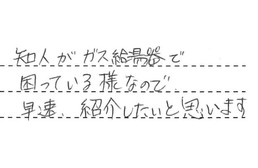 知人がガス給湯器で
困っている様なので
早速、紹介したいと思います